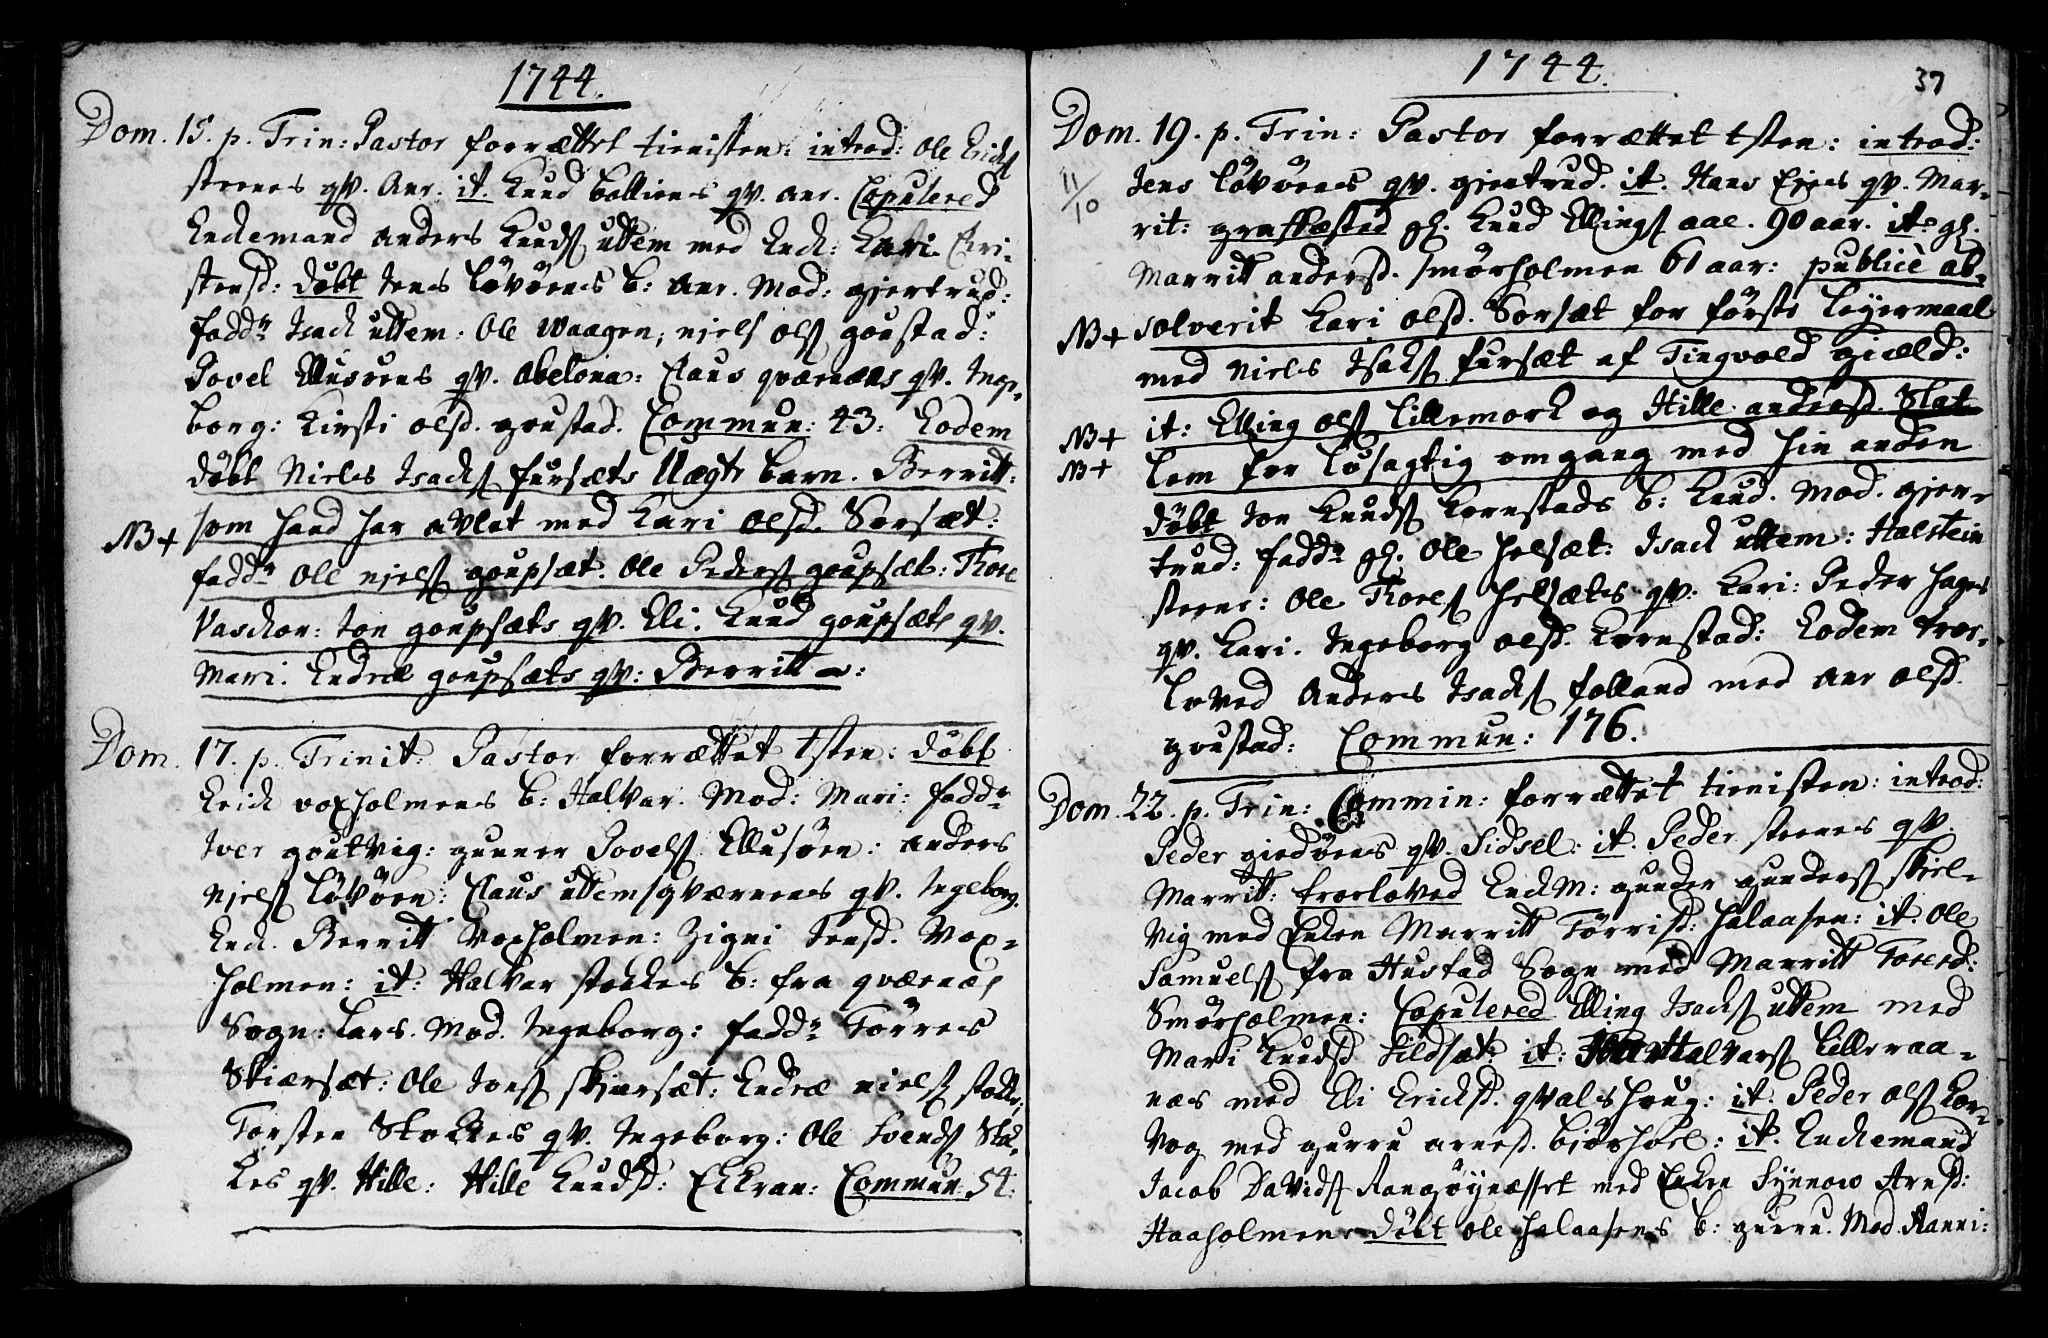 1744.
Dom. 15. p. Trin: Pastor forrættet tienisten: introd: Ole Erichs
steenes qv. Anr. it. Knud bollienes qv. Anr. Copulered
Enchemand Anders Knuds uttem med Ench: Kari Chri-
stensd: døbt Jens Løvøens b: Anr. Mod: gjertrud:
fadd: Isach uttem: Ole Waagen, Njels ols goustad:
Povel Ellusøens qv. Abelona: Claus qværnæs qv. Inge-
borg: Kirsti olsd. goustad. Commun: 43: Eodem
døbt Niels Isachs fursæts Uægte barn. Berritt:
NB+ som hand har avlet med Kari olsd. Sorsæt:
fadd: Ole njels goupsæt. Ole Peders goupsæt: Thore
Vaschon: Jon goupsæts qv. Eli. Knud goupsæts qv.
Mari. Endræ goupsæts qv: Berritta:
Dom. 17. p. Trinit: Pastor forrættet tsten: døbt
Erich voxholmens b: Halvar. Mod: Mari: fadd:
Iver goutvig: gunner Povels Ellusøen: anders
Njels Løvøen: Claus uttem qværnnes qv. Ingeborg.
Ench. Berritt Voxholmen: Zigni Jensd. Vox-
holmen: it: Halvar stokkes b: fra qværnæs
Sogn: Lars. Mod. Ingeborg: fadd: Törres
Skiærsæt: Ole Jons skjærsæt: Endræ niels stokke:
Torsten Stokkes qv. Ingeborg: Ole Svends Stok-
kes qv. Hille: Hille Knudsd: Eckran: Commun 54:
1744. 37
Dom. 19. p. Trin: Pastor forrættet tsten: introd:
11/10 Jens Løvøens qv. gjertrud. it. Hans Ejens qv. Mar-
rit: grafkæsted gl. Knud Ellings aae. 90 aar. it: gl.
Marritt andersd. smörholmen 61 aar: publice ab-
NB+ solverit Kari olsd. Sorsæt for første Leyermaal
med Niels Isachs fursæt af Tingvold gield:
NB+ it: Elling ols Lillemork og Hille andersd. Slat-
NB+ lem for løsagtig omgang med hin anden
døbt Jon Knuds Kornstads b: Knud. Mod. gjer-
trud: fadd: gl. Ole helsæt: Isach uttem: Halstein
steene: Ole Thores helsæts qv. Kari: Peder hages
qv. Kari. Ingeborg olsd. Kornstad: Eodem troe-
loved Anders Isachs folland med Anr olsd.
goustad: Commun: 176.
Dom. 22. p. Trin: Commin: forrættet tienisten: introd:
Peder giedøens qv. Sidsel: it. Peder steenes qv.
Marritt: troeloved EnchM: gunder gunders skjel-
vig med Enken Marritt Törrisd: halaasen: it. Ole
Samuels fra Hustad Sogn med Marritt Toresd:
Smörholmen: Copulered Elling Isachs uttem med
Mari Knudsd sildsæt: it: Halvars Lilleraa-
næs med Eli Erichsd. qvalshoug: it. Peder ols Kor-
vog med gurru arnesd. bjørhoel: it. Enchemand
Jacob Davids Rangøynæsset med Enken Synnow Arnsd:
Haaholmen: døbt ole halaasens b: gurru. Mod. Aanni: